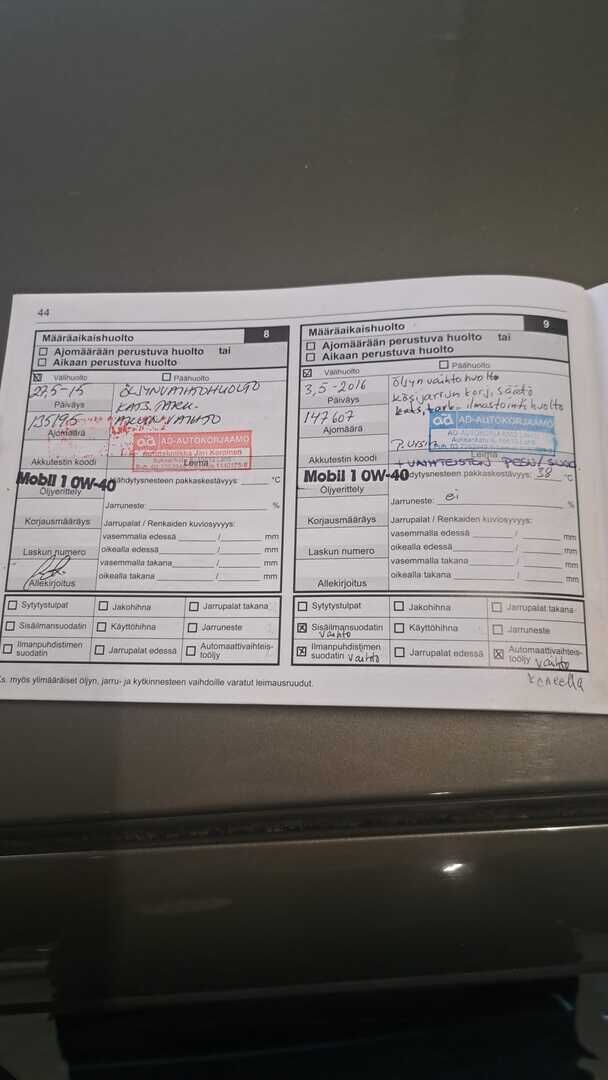 44
Määräaikaishuolto 8
Ajomäärään perustuva huolto tai
Aikaan perustuva huolto
Välihuolto Päähuolto
27,5-15 ÖLJYNVAIHTOHUOLTO
Päiväys KATS. TARK.
135195
Ajomäärä
AD-AUTOKORJAAMO
Autotekniikka Jari Korpinen
Akkutestin koodi Leima
Mobil 1 0W-40
Jäähdytysnesteen pakkaskestävyys: °C
Öljyerittely
Jarruneste: %
Korjausmääräys Jarrupalat / Renkaiden kuviosyvyys:
vasemmalla edessä / mm
Laskun numero oikealla edessä / mm
vasemmalla takana / mm
Allekirjoitus oikealla takana / mm
Sytytystulpat Jakohihna Jarrupalat takana
Sisäilmansuodatin Käyttöhihna Jarruneste
Ilmanpuhdistimen suodatin Jarrupalat edessä Automaattivaihteis-
tööljy
Ks. myös ylimääräiset öljyn, jarru- ja kytkinnesteen vaihdoille varatut leimausruudut.
Määräaikaishuolto 9
Ajomäärään perustuva huolto tai
Aikaan perustuva huolto
Välihuolto Päähuolto
3,5-2016 öljyn vaihto huolto
Päiväys käsijarrun korj, säätö
147607 kats, tark- ilmastointihuolto
Ajomäärä
AD-AUTOKORJAAMO
Akkutestin koodi Leima
+ VAIHTEISTON PESU/
Mobil 1 0W-40
Jäähdytysnesteen pakkaskestävyys: 38 °C
Öljyerittely
Jarruneste: ei %
Korjausmääräys Jarrupalat / Renkaiden kuviosyvyys:
vasemmalla edessä / mm
Laskun numero oikealla edessä / mm
vasemmalla takana / mm
Allekirjoitus oikealla takana / mm
Sytytystulpat Jakohihna Jarrupalat takana
Sisäilmansuodatin Käyttöhihna Jarruneste
vaihto
Ilmanpuhdistimen Jarrupalat edessä Automaattivaihteis-
suodatin vaihto tööljy vaihto
koneella